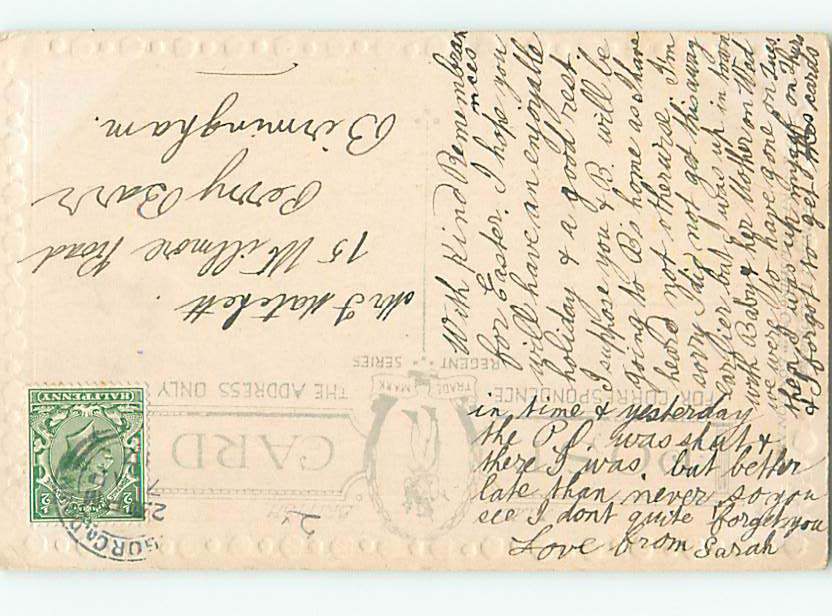 POST CARD
BRITISH
FOR CORRESPONDENCE
THE ADDRESS ONLY
TRADE MARK
REGENT SERIES
HALFPENNY
2d
Mr J Hatchett.
15 Willmore Road
Perry Barr
Birmingham.
With Kind Remembran
nces
for Easter. I hope you
will have an enjoyable
holiday & a good rest.
I suppose you & B. will be
going to B's home as I have
heard not otherwise. I'm
sorry I did not get this away
earlier but I was up in town
with Baby & her Mother on Wed
we were to have gone on Tues.
then I was up myself on Thurs
& I forgot to get cards
in time & yesterday
the P.O. was shut &
there I was, but better
late than never so you
see I dont quite forget you
Love from Sarah